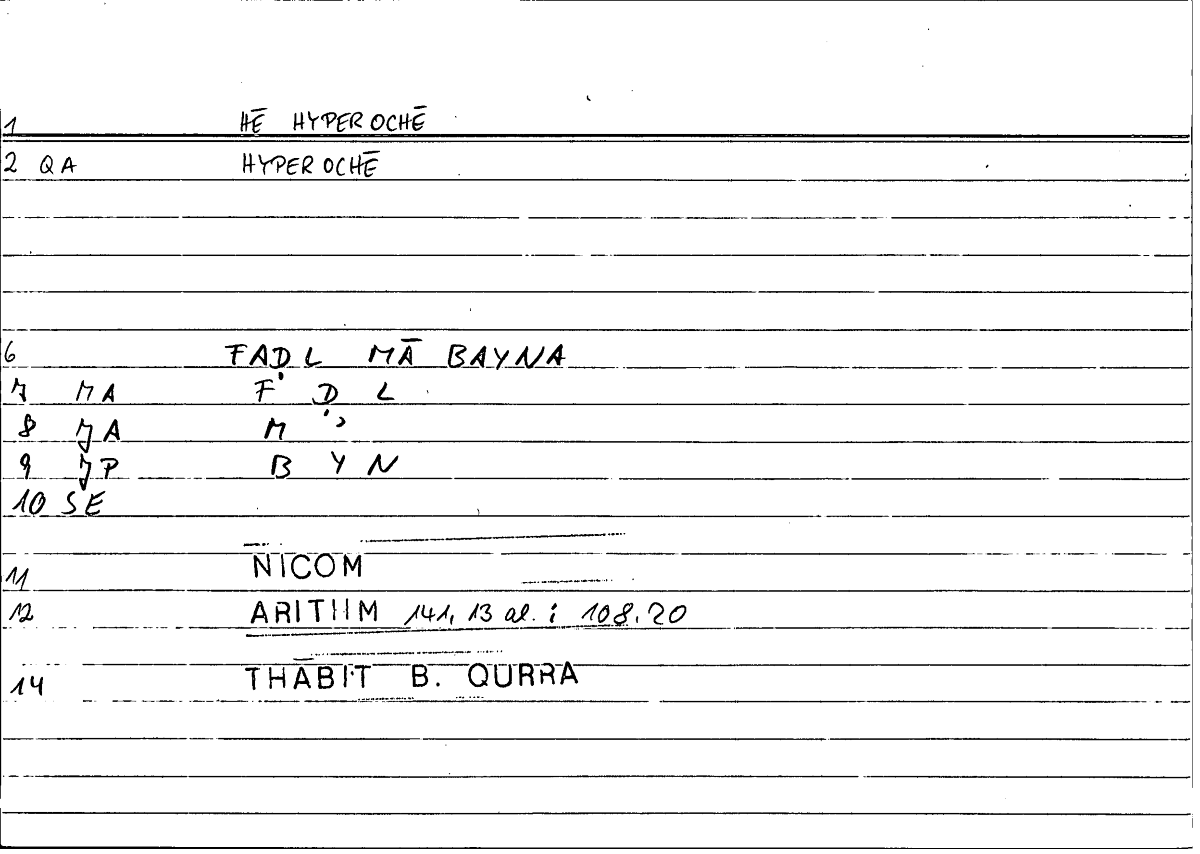 1 HĒ HYPEROCHĒ
2 QA HYPEROCHĒ
6 FAḌL MĀ BAYNA
7 MA F Ḍ L
8 JA M ʾ
9 JP B Y N
10 SE
11 NICOM
12 ARITHM 141, 13 al. ; 108.20
14 THĀBIT B. QURRA